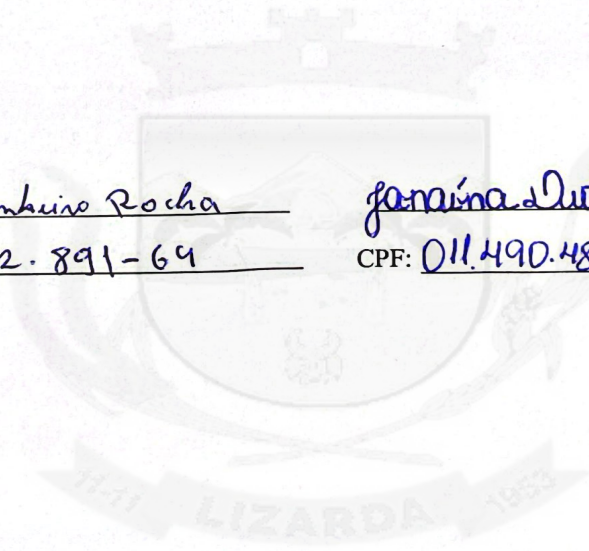 nheiro Rocha
2.891-69
Janaína Du
CPF: 011.490.48
11-11 LIZARDA 1953